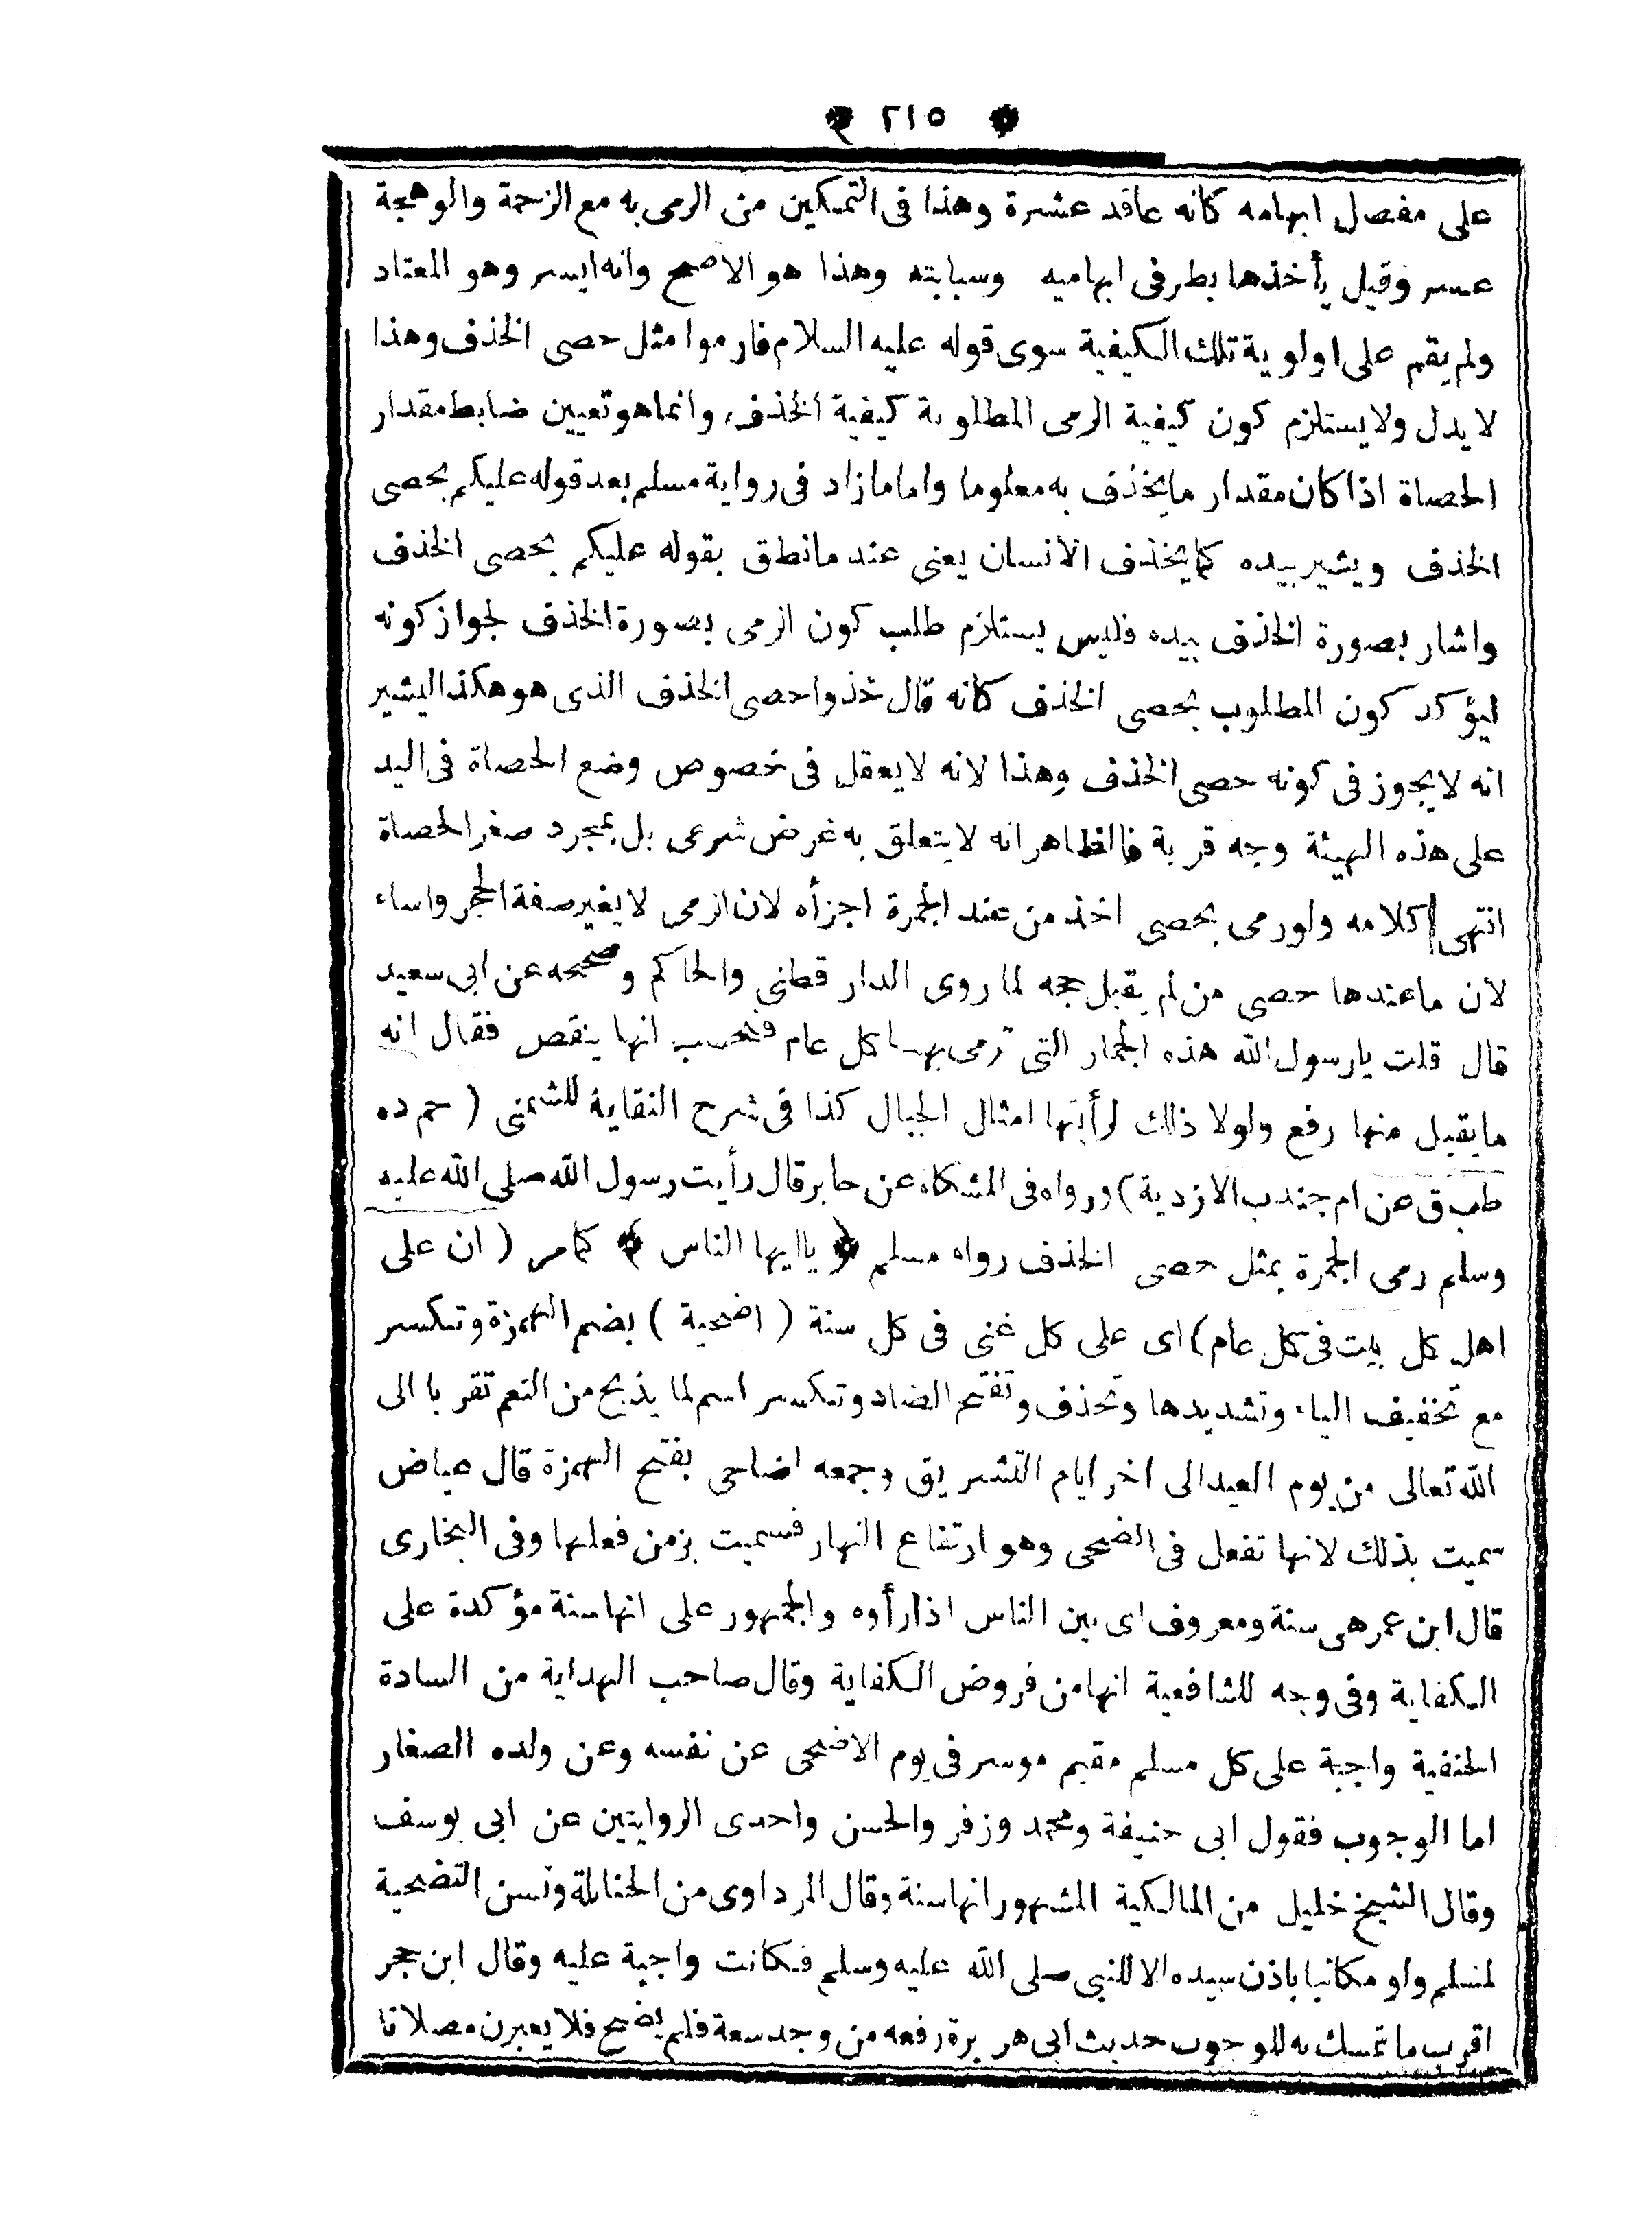 ٢١٥
على مفصل ابهامه كانه عاقد عشرة وهذا فى التمكين من الرمى به مع الزحمة والوهجة
عسر وقيل يأخذها بطرفى ابهاميه وسبابته وهذا هو الاصح وانه ايسر وهو المعتاد
ولم يقم على اولوية تلك الكيفية سوى قوله عليه السلام فارموا مثل حصى الخذف وهذا
لا يدل ولا يستلزم كون كيفية الرمى المطلوبة كيفية الخذف وانما هو تعيين ضابط مقدار
الحصاة اذا كان مقدار ما يخذف به معلوما واما ما زاد فى رواية مسلم بعد قوله عليكم بحصى
الخذف ويشير بيده كما يخذف الانسان يعنى عند ما نطق بقوله عليكم بحصى الخذف
واشار بصورة الخذف بيده فليس يستلزم طلب كون الرمى بصورة الخذف لجواز كونه
ليؤكد كون المطلوب بحصى الخذف كانه قال خذوا حصى الخذف الذى هو هكذا ليشير
انه لا يجوز فى كونه حصى الخذف وهذا لانه لا يعقل فى خصوص وضع الحصاة فى اليد
على هذه الهيئة وجه قربة فالظاهر انه لا يتعلق به غرض شرعى بل بمجرد صغر الحصاة
انتهى كلامه ولو رمى بحصى اخذ من عند الجمرة اجزأه لان الرمى لا يغير صفة الحجر واساء
لان ما عندها حصى من لم يقبل حجه لما روى الدار قطنى والحاكم وصححه عن ابى سعيد
قال قلت يا رسول الله هذه الجمار التى ترمى بها كل عام فنحسب انها ينقص فقال انه
ما يقبل منها رفع ولولا ذلك لرأيتها امثال الجبال كذا فى شرح النقاية للشمنى ( حم ده
طب ق عن ام جندب الازدية ) ورواه فى المشكاه عن جابر قال رأيت رسول الله صلى الله عليه
وسلم رمى الجمرة بمثل حصى الخذف رواه مسلم ﴿ يا ايها الناس ﴾ كما مر ( ان على
اهل كل بيت فى كل عام ) اى على كل غنى فى كل سنة ( اضحية ) بضم الهمزة وتكسر
مع تخفيف الياء وتشديدها وتحذف وتفتح الضاد وتكسر اسم لما يذبح من النعم تقربا الى
الله تعالى من يوم العيد الى اخر ايام التشريق وجمعه اضاحى بفتح الهمزة قال عياض
سميت بذلك لانها تفعل فى الضحى وهو ارتفاع النهار فسميت بزمن فعلها وفى البخارى
قال ابن عمر هى سنة ومعروف اى بين الناس اذا رأوه والجمهور على انها سنة مؤكدة على
الكفاية وفى وجه للشافعية انها من فروض الكفاية وقال صاحب الهداية من السادة
الحنفية واجبة على كل مسلم مقيم موسر فى يوم الاضحى عن نفسه وعن ولده الصغار
اما الوجوب فقول ابى حنيفة ومحمد وزفر والحسن واحدى الروايتين عن ابى يوسف
وقال الشيخ خليل من المالكية المشهور انها سنة وقال المرداوى من الحنابلة وتسن التضحية
لمسلم ولو مكاتبا باذن سيده الا للنبى صلى الله عليه وسلم فكانت واجبة عليه وقال ابن حجر
اقرب ما تمسك به للوجوب حديث ابى هريرة رفعه من وجد سعة فلم يضح فلا يعبرن مصلانا